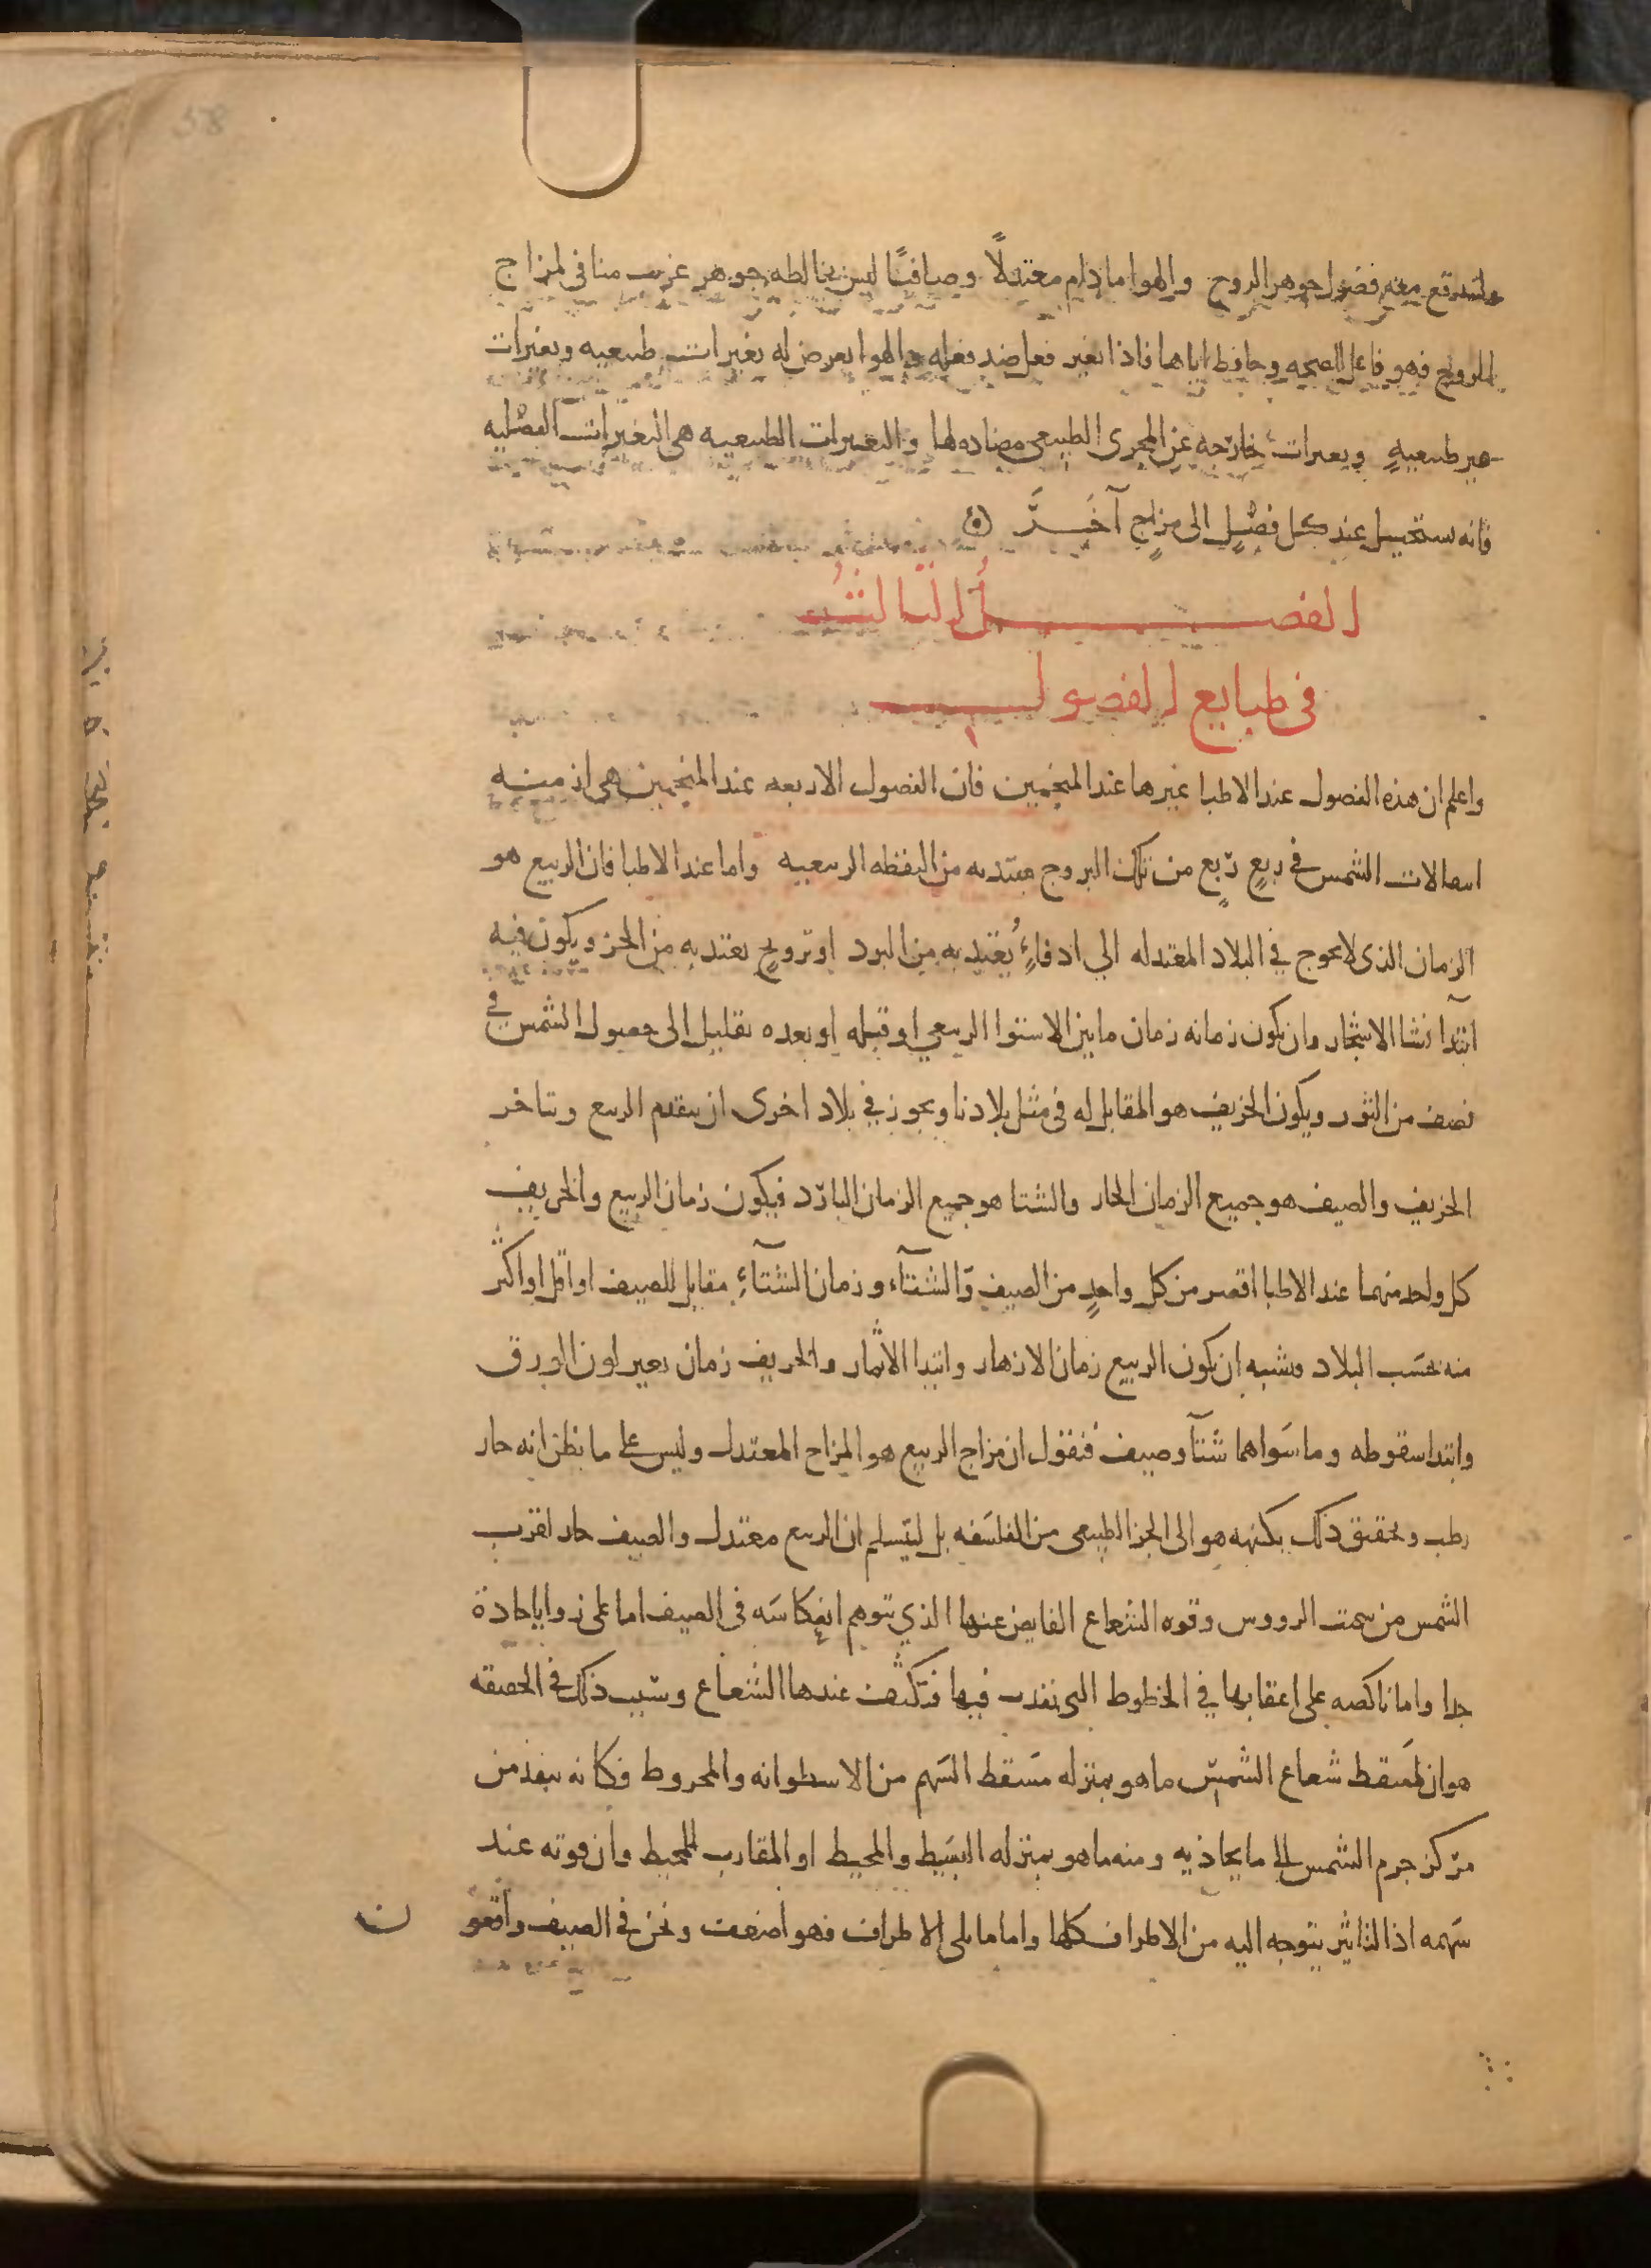 58
ولتندفع معه فضول جوهر الروح والهوا مادام معتدلًا وصافيًا ليس يخالطه جوهر غريب منافى لمزاج
الروح فهو فاعل للصحه وحافظ اياها فاذا تغير فعل ضد فعله والهوا يعرض له تغيرات طبيعيه وتغيرات
غير طبيعيهٍ وتغيرات خارجه عن المجرى الطبيعى مضاده لها والتغيرات الطبيعيه هى التغيرات الفصْليه
فانه يستحيل عند كل فصْلٍ الى مزاجٍ آخَرَ
الفصلُ الثالثُ
فى طبايع الفصول
واعلم ان هذه الفصول عند الاطبا غيرها عند المنجمين فان الفصول الاربعه عند المنجمين هى ازمنه
انتقالات الشمس فى ربعٍ ربعٍ من تلك البروج مبتديه من النقطه الربيعيه واما عند الاطبا فان الربيع هو
الزمان الذى لا يحوج فى البلاد المعتدله الي ادفاءٍ يُعتد به من البرد او ترويحٍ يعتد به من الحر ويكون فيه
ابتدا نشا الاشجار وان يكون زمانه زمان ما بين الاستوا الربيعي او قبله او بعده بقليل الى حصول الشمس في
نصف من الثور ويكون الخريف هو المقابل له فى مثل بلادنا ويجوز في بلاد اخرى ان يتقدم الربيع ويتاخر
الخريف والصيف هو جميع الزمان الحار والشتا هو جميع الزمان البارد فيكون زمان الربيع والخريف
كل واحد منهما عند الاطبا اقصر من كل واحدٍ من الصيف والشتآء وزمان الشتآءِ مقابل للصيف او اقل او اكثر
منه بحسَب البلاد ويشبه ان يكون الربيع زمان الازهار وابتدا الاثمار والخريف زمان تغير لون الورق
وابتدا سقوطه وما سَواهما شتآ وصيف فنقول ان مزاج الربيع هو المزاج المعتدل وليس على ما يظن انه حار
رطب وتحقيق ذلك بكنهه هو الى الجز الطبيعى من الفلسَفه بل ليتسلم ان الربيع معتدل والصيف حار لقرب
الشمس من سمت الرووس وقوه الشعاع الفايض عنها الذي يتوهم انعكاسَه فى الصيف اما على زوايا حادة
جدا واما ناكصه على اعقابها في الخطوط التى نفدت فيها فتكثف عندها الشعاع وسَبب ذلك فى الحقيقه
هو ان مَسقط شعاع الشمس ما هو بمنزله مسَقط السَهم من الاسطوانه والمخروط فكانه ينفذ من
مركز جرم الشمس الى ما يحاذيه ومنه ما هو بمنزله البسَيط والمحيط او المقارب للمحيط وان قوته عند
سَهمه اذ التاثير يتوجه اليه من الاطراف كلها واما ما يلى الاطراف فهو اضعف ونحن فى الصيف واقعو ن